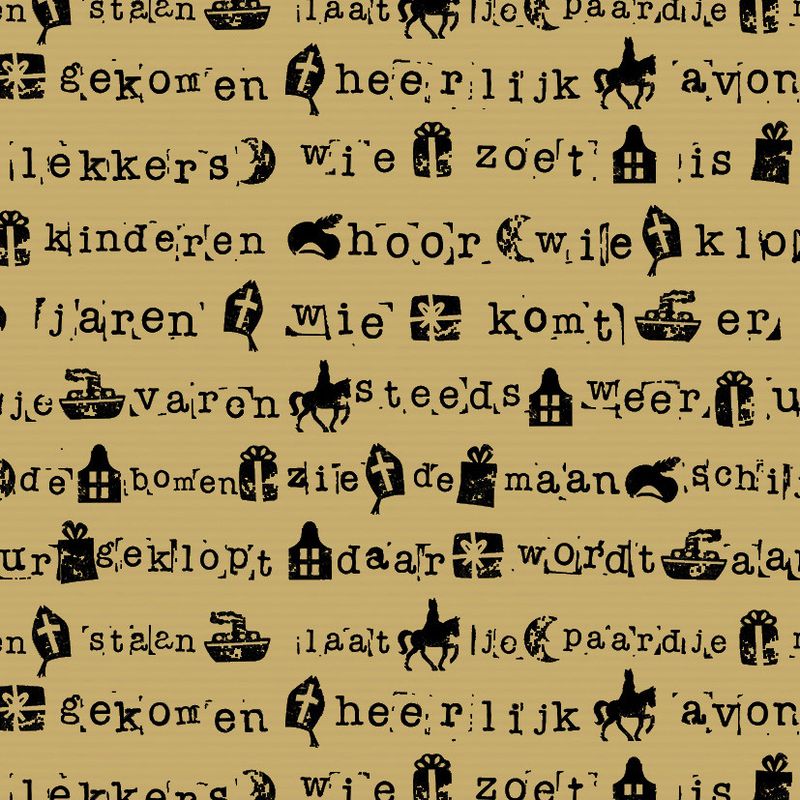 en staan laat je paardje
gekomen heerlijk avon
lekkers wie zoet is
kinderen hoor wie klop
jaren wie komt er
sje varen steeds weer u
de bomen zie de maan schij
ur geklopt daar wordt aa
en staan laat je paardje
gekomen heerlijk avon
lekkers wie zoet is